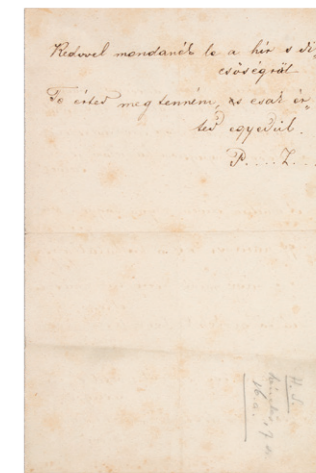 Kedvvel mondanék le a hír s di-
csőségről
Te érted megtenném, és csak ér-
ted egyedül.
P.... Z....
H. S.
16 a.